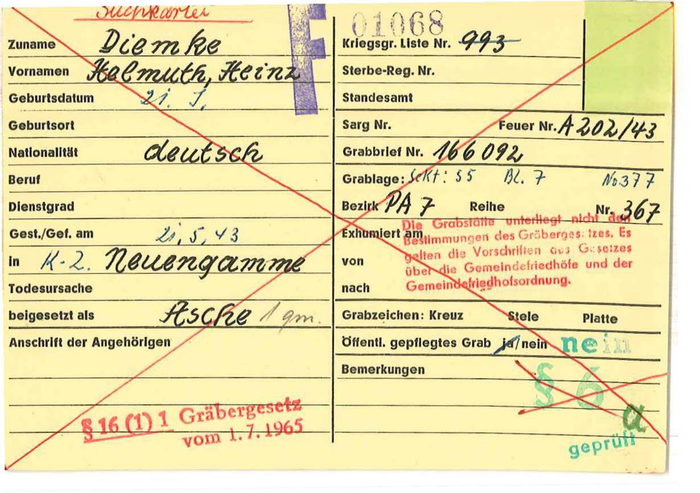 Suchkartei
F
01068
Zuname Diemke
Vornamen Helmuth, Heinz
Geburtsdatum
Geburtsort
Nationalität deutsch
Beruf
Dienstgrad
Gest./Gef. am 21.5.43
in K-Z. Neuengamme
Todesursache
beigesetzt als Asche 1 qm.
Anschrift der Angehörigen
§ 16 (1) 1 Gräbergesetz
vom 1.7.1965
Kriegsgr. Liste Nr. 993
Sterbe-Reg. Nr.
Standesamt
Sarg Nr. Feuer Nr. A 202/43
Grabbrief Nr. 166092
Grablage: Bl. 7 No 377
Bezirk PA 7 Reihe Nr. 367
Exhumiert am
von
nach
Die Grabstätte unterliegt nicht den
Bestimmungen des Gräbergesetzes. Es
gelten die Vorschriften des Gesetzes
über die Gemeindefriedhöfe und der
Gemeindefriedhofsordnung.
Grabzeichen: Kreuz Stele Platte
Öffentl. gepflegtes Grab ja/nein nein
Bemerkungen
§ 6
a
geprüft